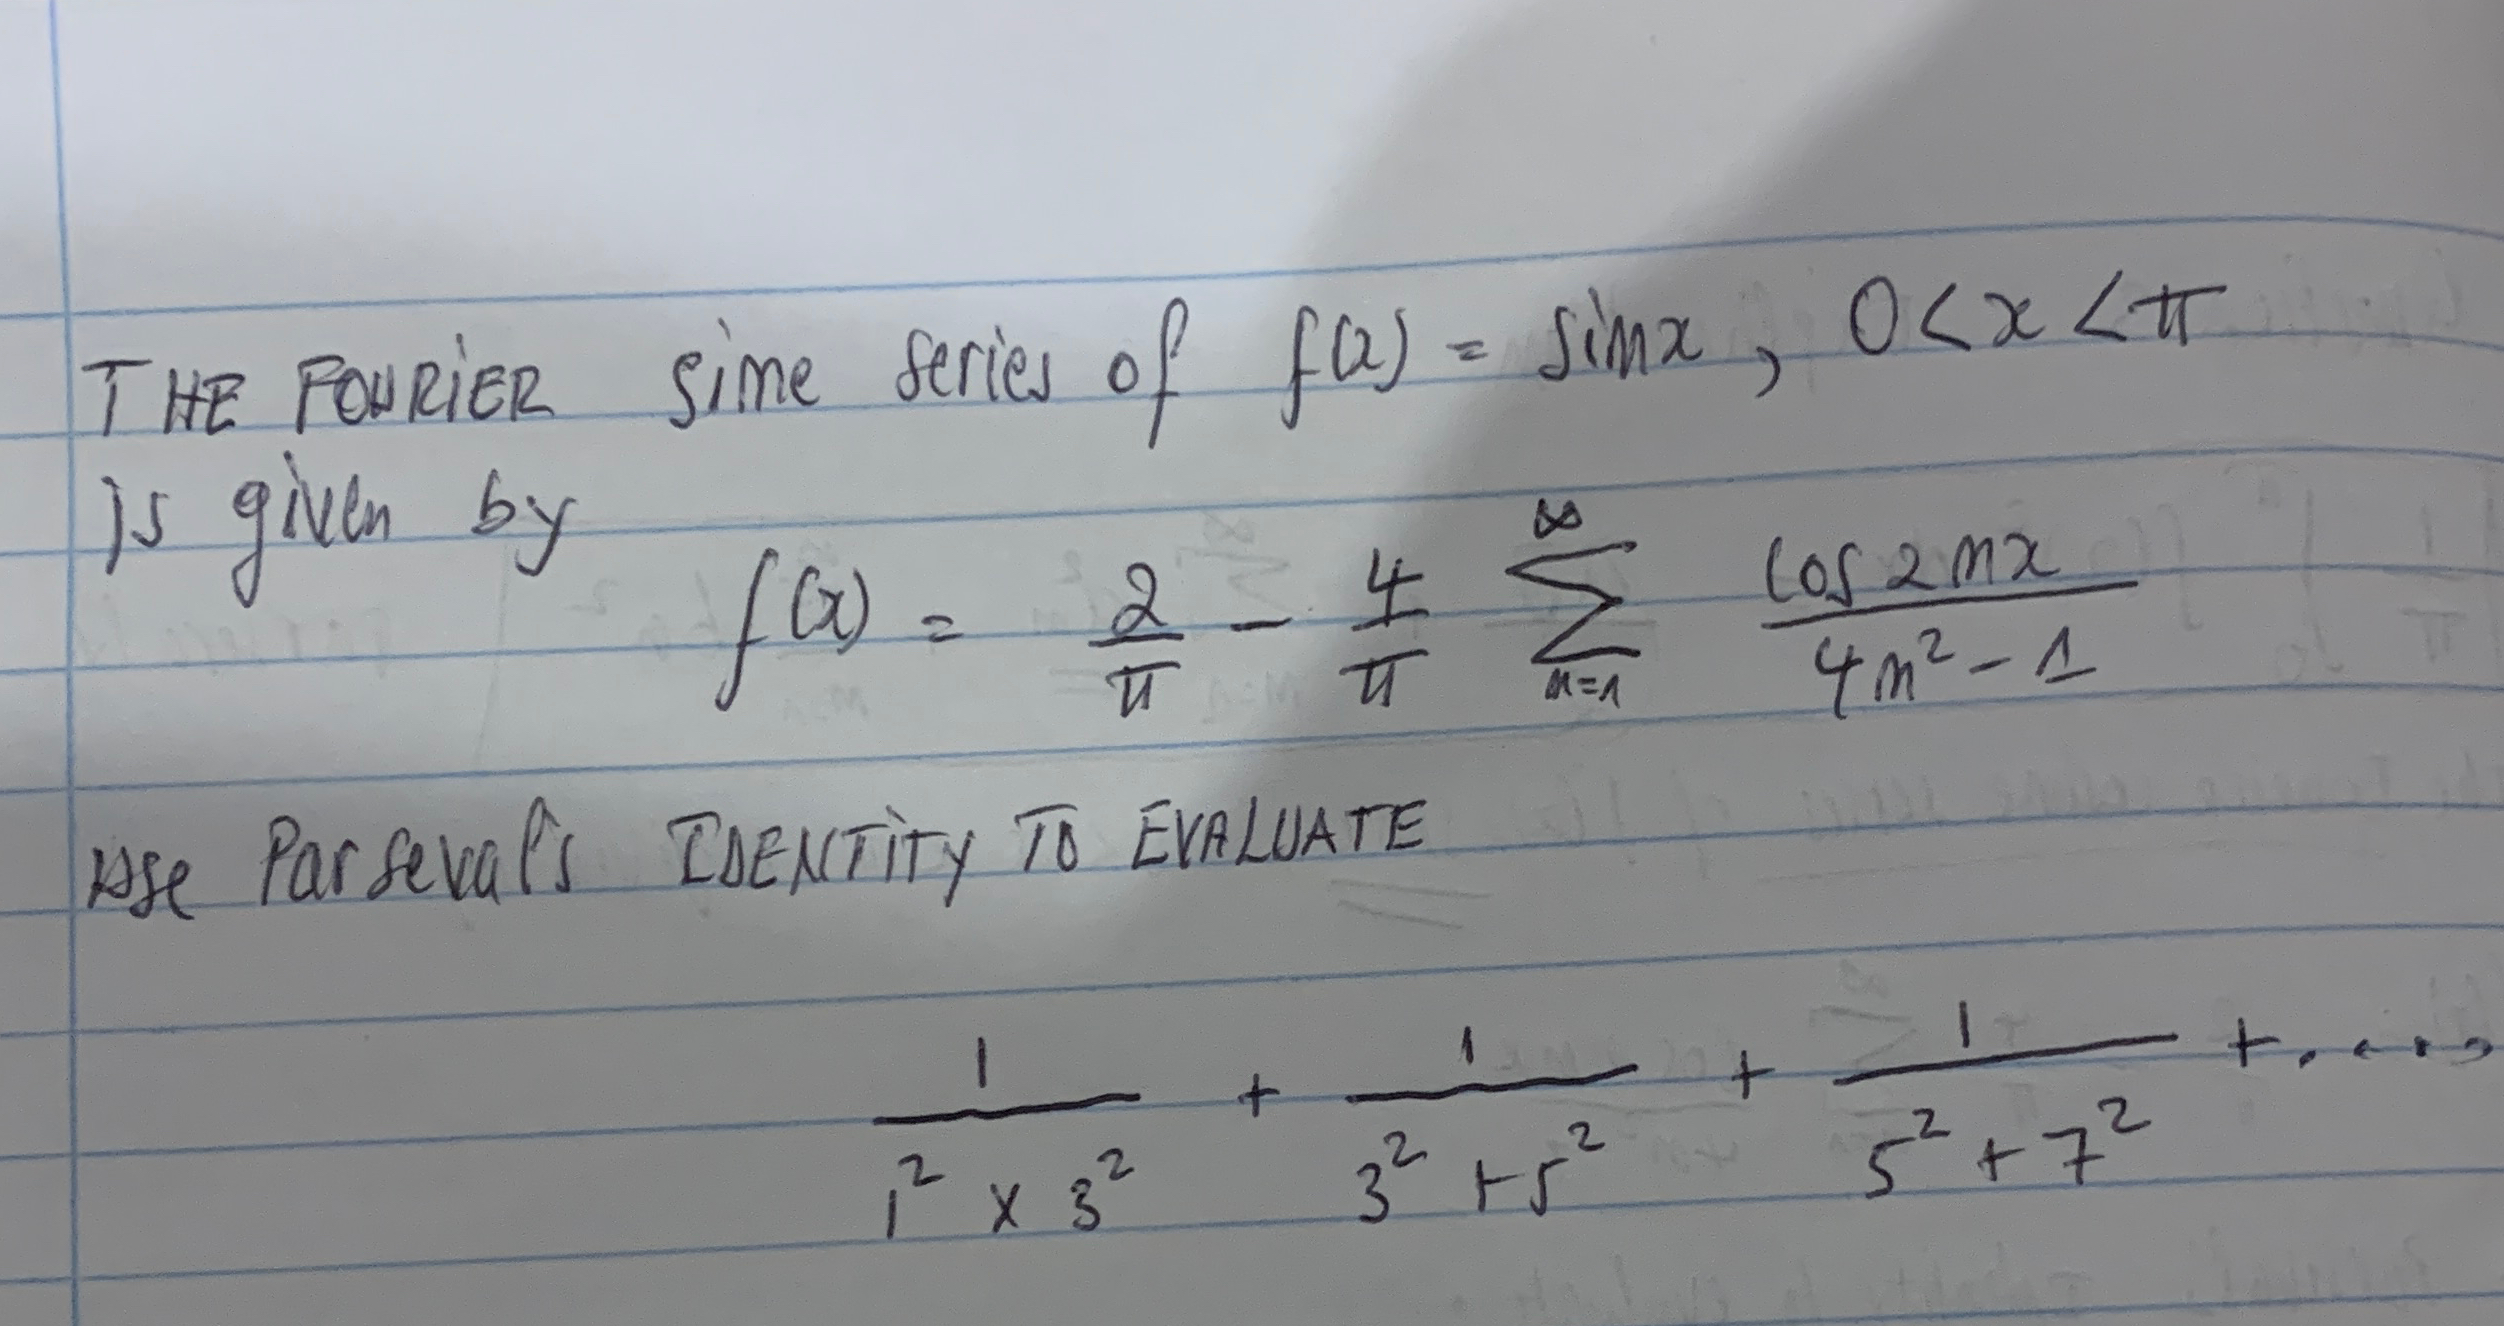 THE FOURIER sine series of f(x) = sinx, 0<x<π
is given by
f(x) = 2/π - 4/π ∑_{n=1}^{∞} cos2nx / 4n²-1
Use Parseval's IDENTITY TO EVALUATE
1/(1² x 3²) + 1/(3² + 5²) + 1/(5² + 7²) + ....